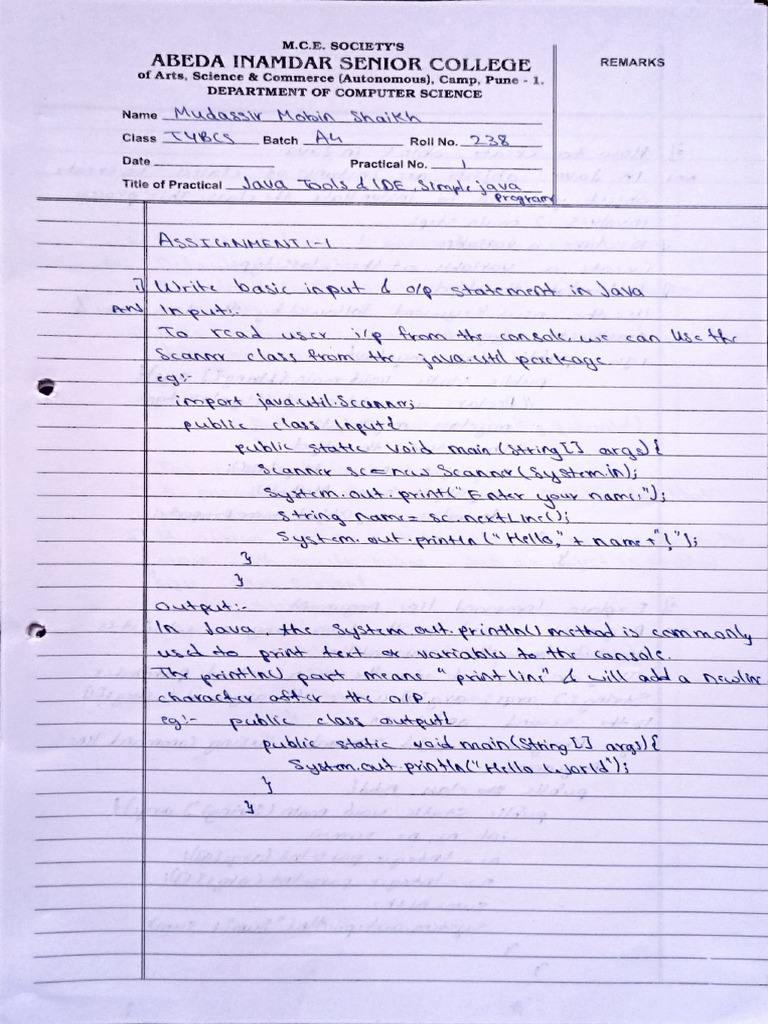 M.C.E. SOCIETY'S
ABEDA INAMDAR SENIOR COLLEGE
of Arts, Science & Commerce (Autonomous), Camp, Pune - 1.
DEPARTMENT OF COMPUTER SCIENCE
REMARKS
Name Mudassir Mobin Shaikh
Class TYBCS Batch A4 Roll No. 238
Date Practical No. 1
Title of Practical Java Tools & IDE, Simple java
Program
ASSIGNMENT:-1
1) Write basic input & o/p statement in Java
Ans Input:-
To read user i/p from the console, we can use the
Scanner class from the java.util package.
eg:-
import java.util.Scanner;
public class Input{
public static void main (String[] args){
Scanner sc=new Scanner(System.in);
System.out.print("Enter your name:");
String name= sc.nextLine();
System.out.println ("Hello," + name+"!");
}
}
Output:-
In Java, the System.out.println() method is commonly
used to print text or variables to the console.
The println() part means "print line" & will add a newline
character after the o/p
eg:- public class output{
public static void main(String [] args){
System.out.println("Hello World");
}
}